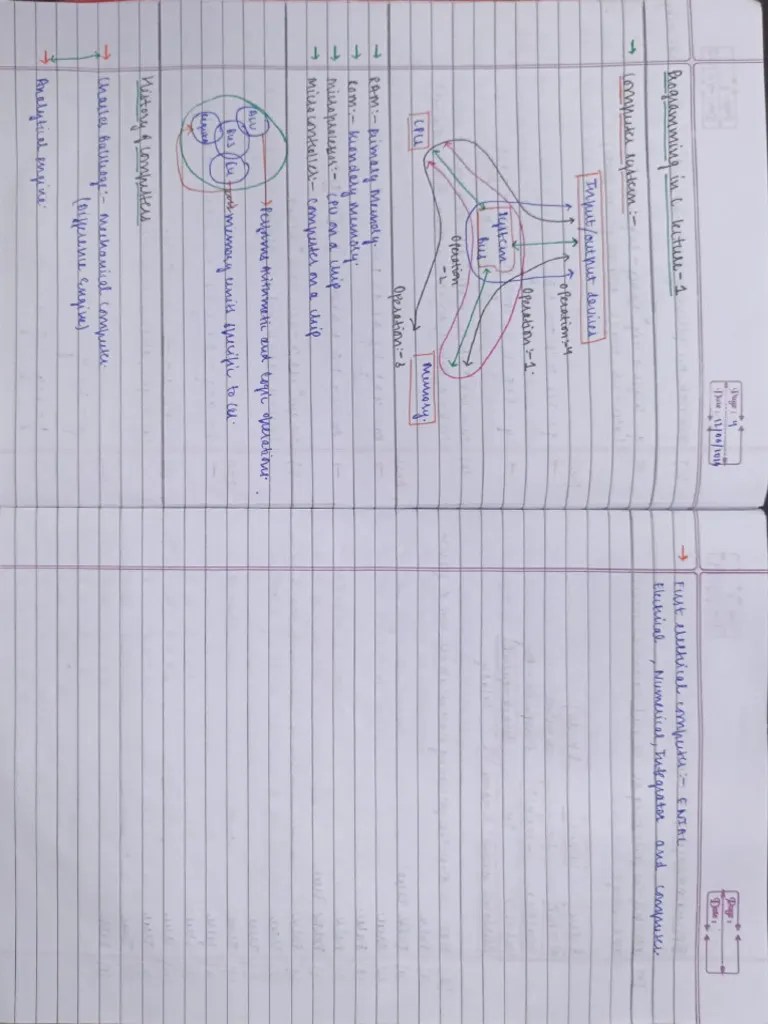 Page: 4
Programming in C lecture-1
Computer system:-
Input/output devices
Operation:-4
System Bus
Operation:-1.
CPU
Operation -2
Memory.
Operation:-3
RAM:- Primary Memory.
ROM:- Secondary Memory.
Microprocessor:- CPU on a chip
Microcontroller:- Computer on a chip
ALU
Performs Arithmatic and Logic operations.
BUS
CU
memory units specific to CU.
History of computers
Charles Babbage:- Mechanical Computer.
(Difference Engine)
Analytical engine.
Page:
Date:
First electrical computer:- ENIAC
Electrical, Numerical, Integrator and computer.